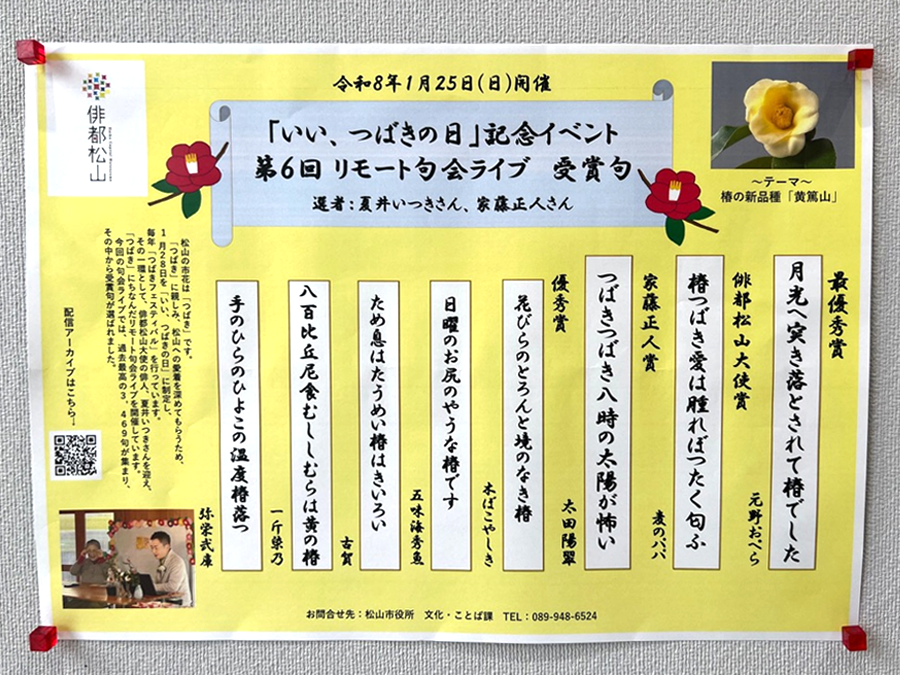 令和8年1月25日(日)開催
「いい、つばきの日」記念イベント
第6回 リモート句会ライブ 受賞句
選者:夏井いつきさん、家藤正人さん
俳都松山
~テーマ~
椿の新品種「黄篤山」
最優秀賞
月光へ突き落とされて椿でした
元野おぺら
俳都松山大使賞
椿つばき愛は腫ればつたく匂ふ
麦のパパ
家藤正人賞
つばきつばき八時の太陽が怖い
太田陽翠
優秀賞
花びらのとろんと境のなき椿
木ぼこやしき
日曜のお尻のやうな椿です
五味海秀魚
ため息はたうめい椿はきいろい
古賀
八百比丘尼食むししむらは黄の椿
一斤染乃
手のひらのひよこの温度椿落つ
弥栄武庫
松山の市花は「つばき」です。
「つばき」に親しみ、松山への愛着を深めてもらうため、
1月28日を「いい、つばきの日」に制定し、
毎年「つばきフェスティバル」を行っています。
その一環として、俳都松山大使の俳人、夏井いつきさんを迎え、
「つばき」にちなんだリモート句会ライブを開催しています。
今回の句会ライブでは、過去最高の3,469句が集まり、
その中から受賞句が選ばれました。
配信アーカイブはこちら→
お問合せ先:松山市役所 文化・ことば課 TEL:089-948-6524